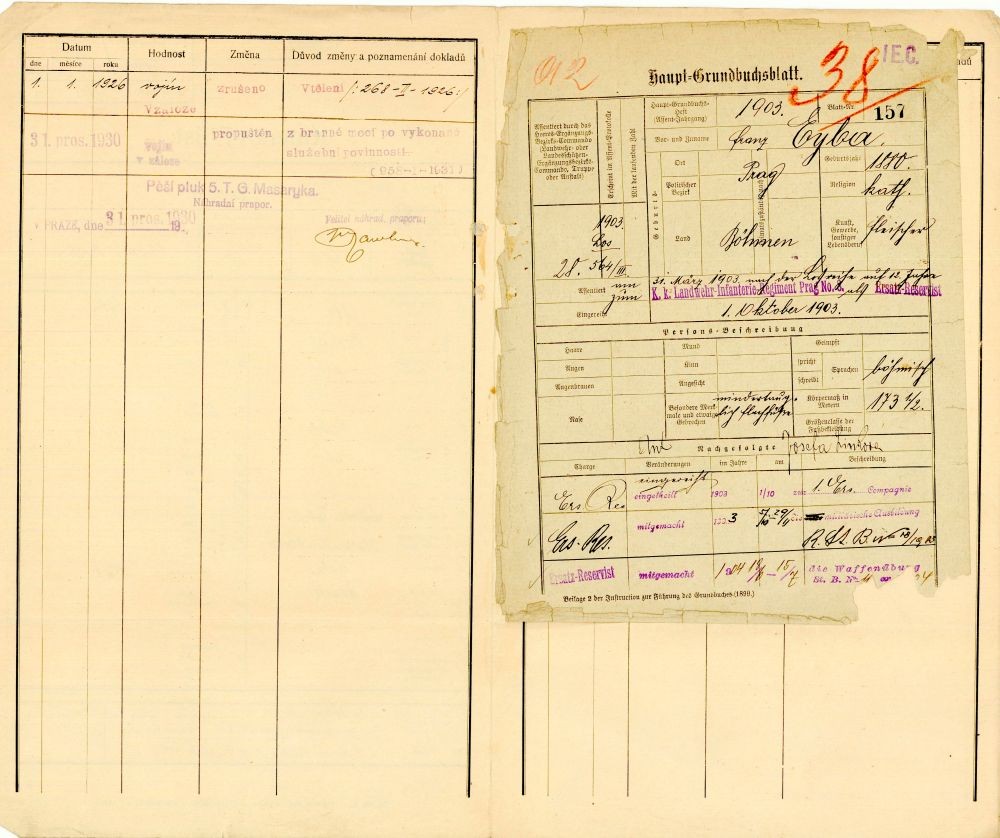 Datum
Hodnost
Změna
Důvod změny a poznamenání dokladů
dne měsíce roku
1. 1. 1926 vojín zrušeno Vtělení /:268-II-1926:/
V záloze
31. pros. 1930 vojín v záloze propuštěn z branné moci po vykonané
služební povinnosti.
(058-I-1931)
Pěší pluk 5. T. G. Masaryka.
Náhradní prapor.
V PRAZE, dne 31. pros. 1930 19
Velitel náhrad. praporu:
38
IEC.
Haupt-Grundbuchsblatt.
Assentiert durch das Heeres-Ergänzungs-Bezirks-Commando (Landwehr- oder Landesschützen-Ergänzungsbezirks-Commando, Truppe oder Anstalt)
Erscheint im Assent-Protokolle
Mit der laufenden Zahl
Haupt-Grundbuchs-Heft (Assent-Jahrgang) 1903.
Blatt-Nr. 157
Vor- und Zuname Franz Eyba.
Geburts-
Ort Prag
Geburtsjahr 1880
Politischer Bezirk
Religion kath.
Land Böhmen
Kunst, Gewerbe, sonstiger Lebensberuf Fleischer
1903
Los
28. 564/III
Assentiert am 31. März 1903 nach der Losreihe auf 12 Jahre
zum K. k. Landwehr-Infanterie-Regiment Prag No. 8, als Ersatz-Reservist
Eingereiht 1. Oktober 1903.
Persons-Beschreibung
Haare
Mund
Geimpft
Augen
Kinn
spricht
schreibt
Sprachen böhmisch
Augenbrauen
Angesicht
Nase
Besondere Merkmale und etwaige Gebrechen mindertauglich Plattfüße
Körpermaß in Metern 173 1/2.
Größenclasse der Fußbekleidung
Nachgefolgte Josefa
Charge
Veränderungen
im Jahre
am
Beschreibung
eingereiht
Ers. Res eingetheilt 1903 1/10 zur 1. Ers. Compagnie
Ers. Res. mitgemacht 1903 die militärische Ausbildung
Ersatz-Reservist mitgemacht 1904 die Waffenübung
St. B. No
Beilage 2 der Instruction zur Führung des Grundbuches (1899.)